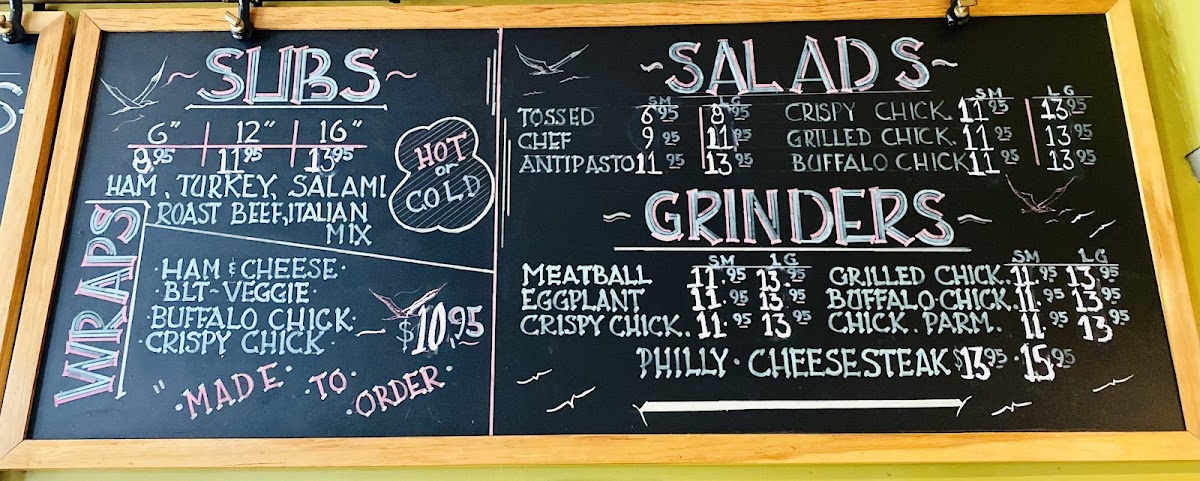 S
SUBS
6" 12" 16"
8.95 11.95 13.95
HAM, TURKEY, SALAMI
ROAST BEEF, ITALIAN
MIX
HOT
or
COLD
WRAPS
·HAM & CHEESE·
·BLT~VEGGIE·
·BUFFALO CHICK·
·CRISPY CHICK·
$10.95
"MADE·TO·ORDER·
~SALADS~
SM LG SM LG
TOSSED 6.95 8.95 CRISPY CHICK. 11.95 13.95
CHEF 9 25 11 25 GRILLED CHICK. 11 25 13 95
ANTIPASTO 11 25 13 95 BUFFALO CHICK 11 25 13 95
~GRINDERS~
SM LG SM LG
MEATBALL 11.95 13.95 GRILLED CHICK. 11.95 13.95
EGGPLANT 11.95 13.95 BUFFALO·CHICK. 11.95 13.95
CRISPY CHICK. 11.95 13.95 CHICK. PARM. 11.95 13.95
PHILLY·CHEESESTEAK $13.95·15.95